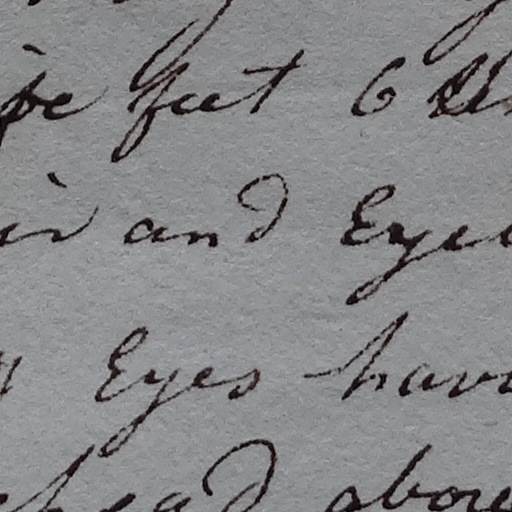 feet 6
and Eye
Eyes have
head above